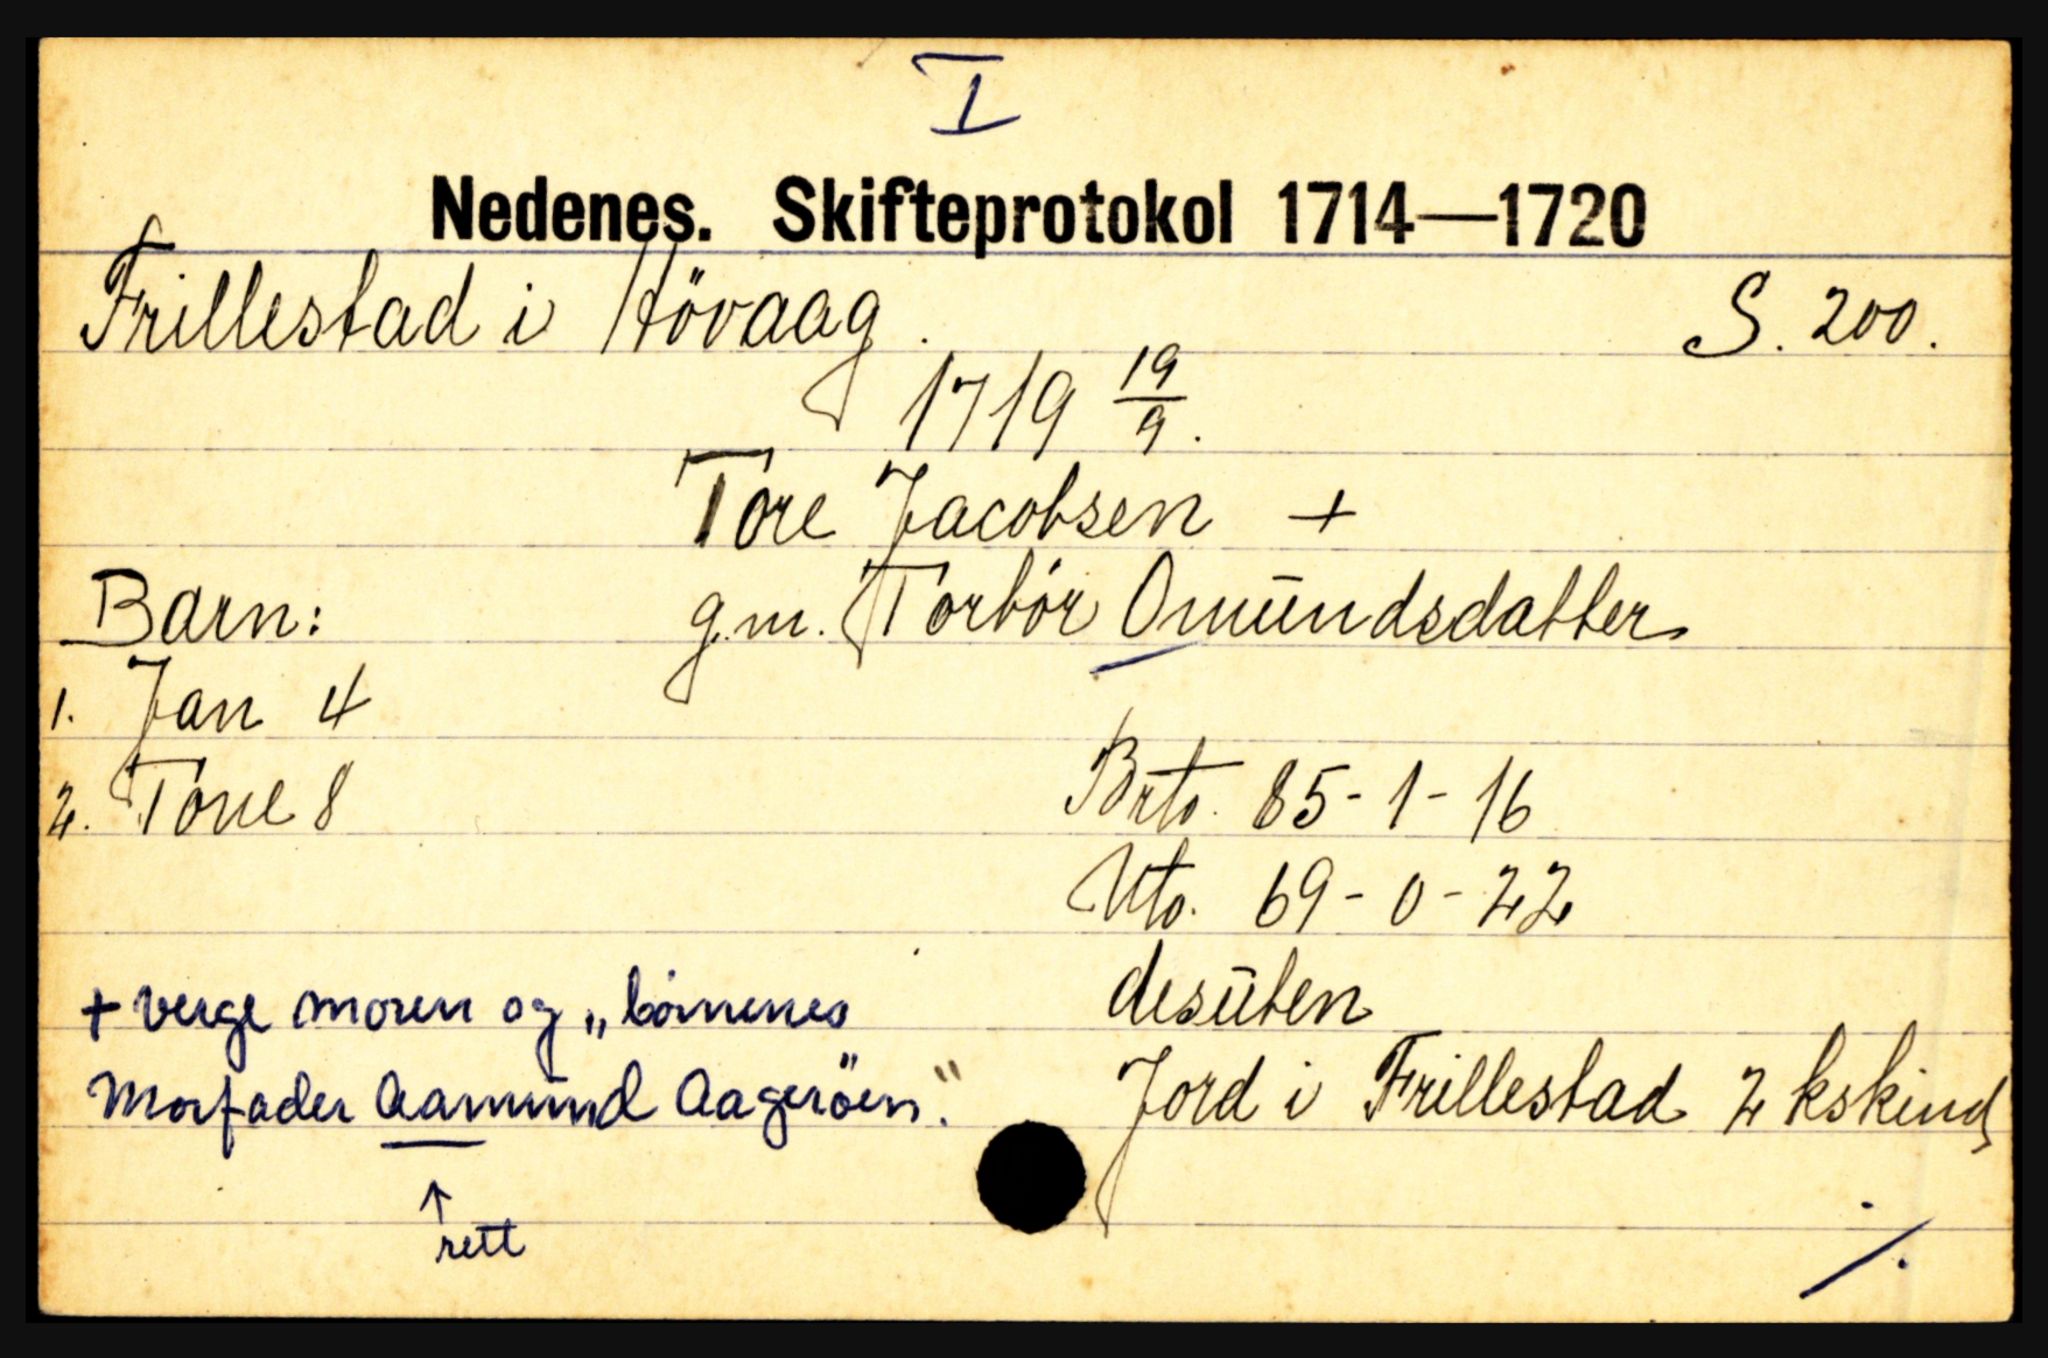 I
Nedenes. Skifteprotokol 1714—1720
Frillestad i Hövaag. S. 200.
1719 19/9.
Tore Jacobsen +
g.m. Torbör Omūndsdatter
Barn:
1. Jan 4
2. Tone 8
Brto. 85-1-16
Nto. 69-0-22
desūten
Jord i Frillestad 2 kskind
+ verge moren og „börnenes
Morfader Aamund Aageröen."
↑
rett
./.